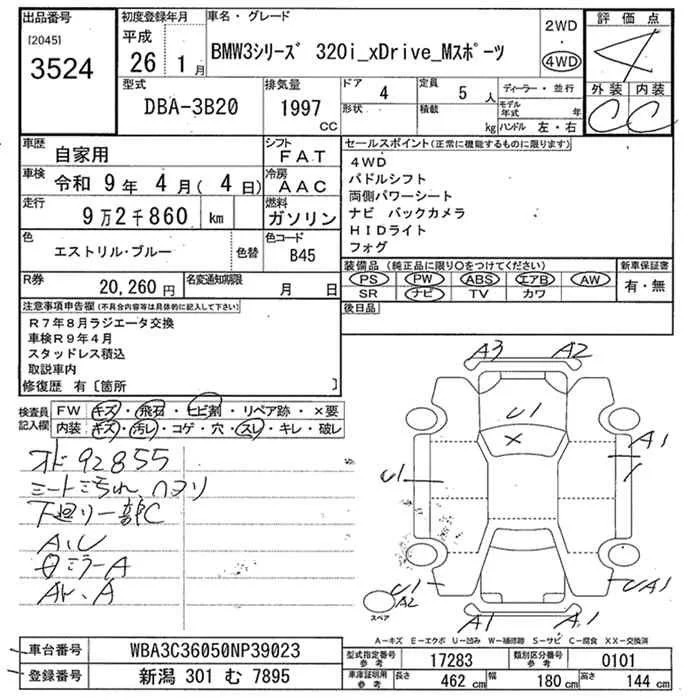 出品番号
[2045]
3524
初度登録年月
平成
26 1月
車名・グレード
BMW3シリーズ 320i_xDrive_Mスポーツ
2WD
4WD
評価点
4
外装 内装
C C
型式
DBA-3B20
排気量
1997
CC
ドア
4
形状
定員
5 人
積載
kg
ディーラー・並行
モデル年式 年
ハンドル 左・右
車歴
自家用
シフト
FAT
車検
令和 9年 4月( 4日)
冷房
AAC
走行
9万2千860 km
燃料
ガソリン
色
エストリル・ブルー
色替
色コード
B45
R券
20,260円
名変通知期限
月 日
セールスポイント(正常に機能するものに限ります)
4WD
パドルシフト
両側パワーシート
ナビ バックカメラ
HIDライト
フォグ
装備品(純正品に限り○をつけてください)
PS PW ABS エアB AW
SR ナビ TV カワ
新車保証書
有・無
後日品
注意事項申告欄(不具合内容等は具体的に記入して下さい)
R7年8月ラジエータ交換
車検R9年4月
スタッドレス積込
取説車内
修復歴 有〔箇所 〕
検査員記入欄
FW キズ・飛石・ヒビ割・リペア跡・×要
内装 キズ・汚レ・コゲ・穴・スレ・キレ・破レ
オド92855
シート汚れ、ヘタリ
下廻り一部C
A、U
ミラーA
A
A3 A2
U1
×
A1
U1
U1
A2
スペア
A1 A1
UA1
A－キズ E－エクボ U－凹み W－補修跡 S－サビ C－腐食 XX－交換済
車台番号
WBA3C36050NP39023
登録番号
新潟 301 む 7895
型式指定番号
参考
17283
類別区分番号
参考
0101
車庫証明用
参考
長さ
462 cm
幅
180 cm
高さ
144 cm